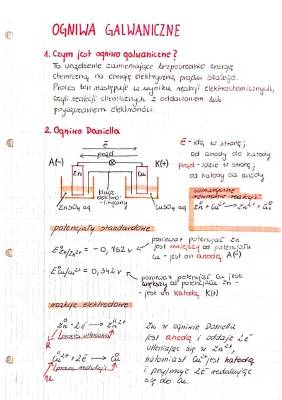 OGNIWA GALWANICZNE
1. Czym jest ogniwo galwaniczne?
To urządzenie zamieniające bezpośrednio energię
chemiczną na energię elektryczną prądu stałego.
Proces ten następuje w wyniku reakcji elektrochemicznych,
czyli reakcji chemicznych z oddawaniem lub
przyjmowaniem elektronów.
2. Ogniwo Daniella
e⁻
prąd
A(-)
K(+)
Zn
Cu
klucz
elektro-
lityczny
ZnSO₄ aq
CuSO₄ aq
e⁻ - idą w stronę:
od anody do katody
prąd - idzie w stronę:
od katody do anody
sumaryczne
równanie reakcji
Zn + Cu²⁺ → Zn²⁺ + Cu
potencjały standardowe
E°Zn/Zn²⁺ = -0,762 V
ponieważ potencjał Zn
jest mniejszy od potencjału
Cu - jest on anodą A(-)
E°Cu/Cu²⁺ = 0,342 V
ponieważ potencjał Cu jest
większy od potencjału Zn -
jest on katodą K(+)
reakcje elektrodowe
Zn - 2e⁻ → Zn²⁺
(proces utleniania)
R
Cu²⁺ + 2e⁻ → Cu
(proces redukcji)
U
Zn w ogniwie Daniella
jest anodą i oddaje 2e⁻
utleniając się w Zn²⁺,
natomiast Cu²⁺ jest katodą
i przyjmuje 2e⁻ redukując
się do Cu.